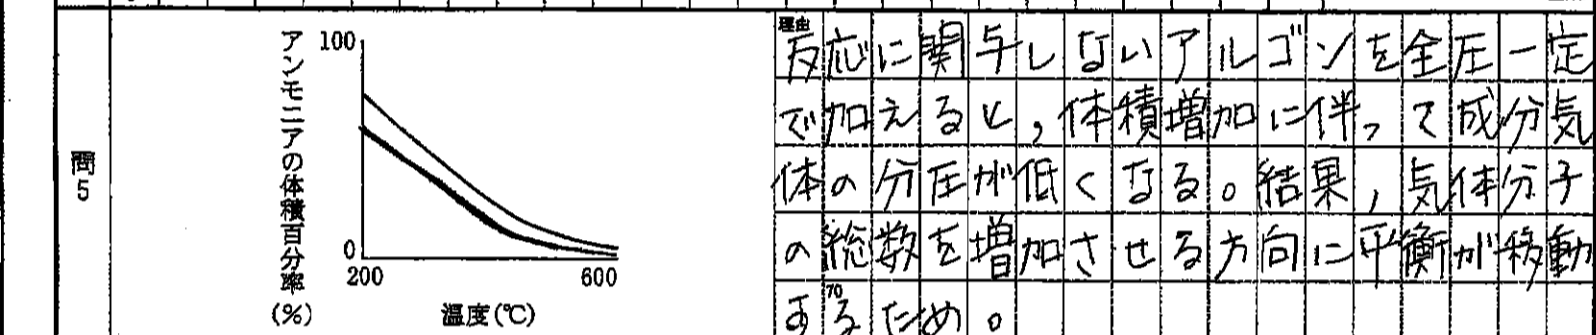 問5
アンモニアの体積百分率(%)
100
0
200
600
温度(℃)
理由
反応に関与しないアルゴンを全圧一定
で加えると,体積増加に伴って成分気
体の分圧が低くなる。結果,気体分子
の総数を増加させる方向に平衡が移動
70
するため。